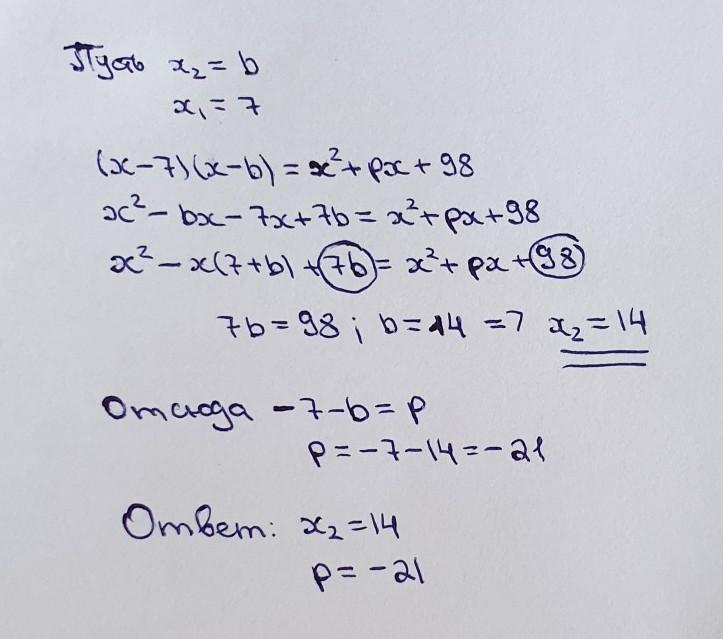 Пусть x₂ = b
x₁ = 7
(x-7)(x-b) = x² + px + 98
x² - bx - 7x + 7b = x² + px + 98
x² - x(7+b) + 7b = x² + px + 98
7b = 98 ; b = 14 => x₂ = 14
Отсюда -7-b = p
p = -7-14 = -21
Ответ: x₂ = 14
p = -21